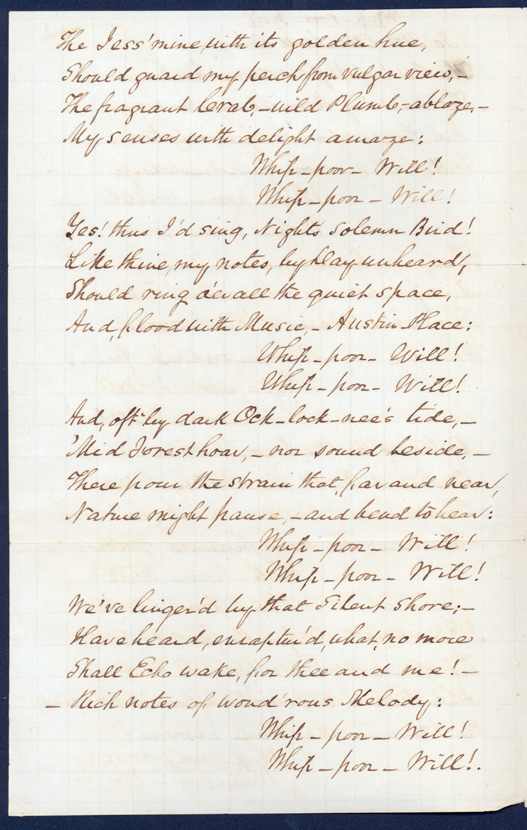 The Jess'mine, with its golden hue,
Should guard my perch from vulgar view,–
The fragrant Crab,–wild Plumb,–ablaze,–
My senses with delight amaze:
Whip–poor–Will!
Whip–poor–Will!
Yes! thus I'd sing, Night's Solemn Bird!
Like thine, my notes, by Day unheard,
Should ring o'er all the quiet space,
And, flood with Music,–Austin Place:
Whip–poor–Will!
Whip–poor–Will!
And, oft by dark Ock–lock–nee's tide,–
'Mid Forest hoar,–nor sound beside,–
There pour the strain that, far and near,
Nature might pause,–and bend to hear:
Whip–poor–Will!
Whip–poor–Will!
We've linger'd by that Silent Shore;–
Have heard, enraptur'd, what, no more
Shall Echo wake, for thee and me!–
– Rich notes of wond'rous Melody:
Whip–poor–Will!
Whip–poor–Will!.